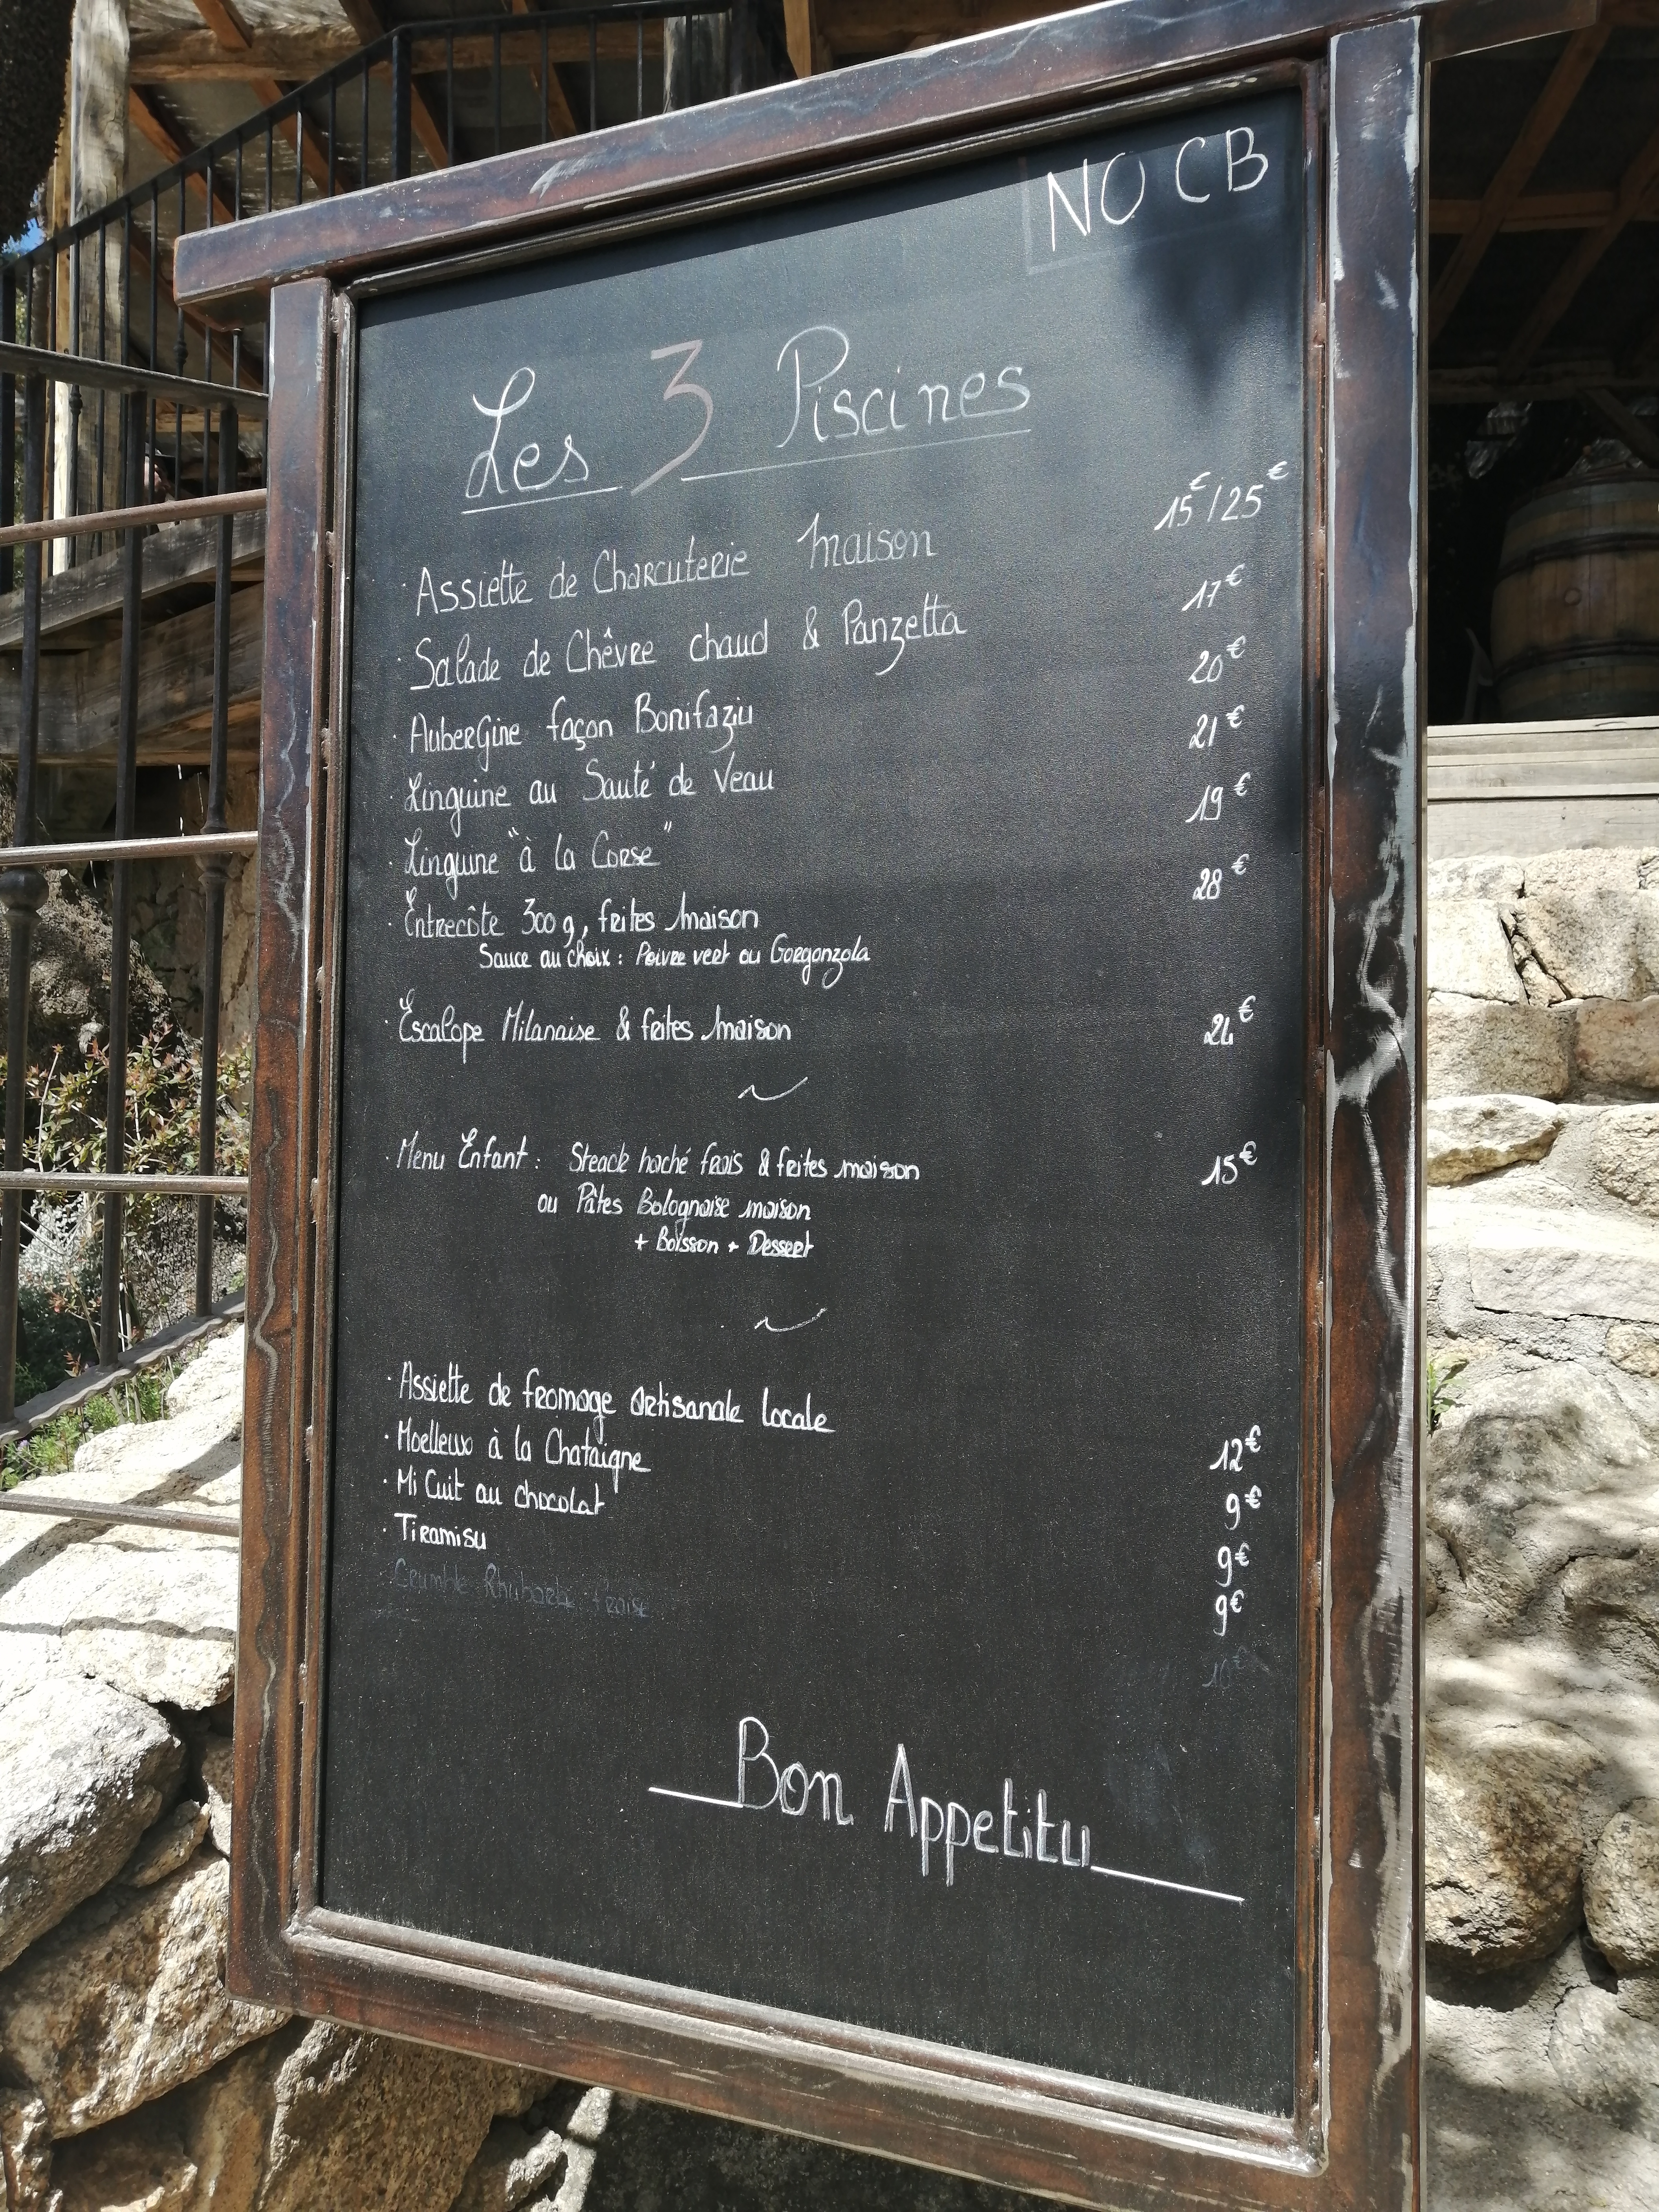 NO CB
Les 3 Piscines
· Assiette de Charcuterie maison 15€/25€
· Salade de Chêvre chaud & Panzetta 17€
· Aubergine façon Bonifaziu 20€
· Linguine au Sauté de Veau 21€
· Linguine "à la Corse" 19€
· Entrecôte 300g, frites maison 28€
Sauce au choix : Poivre vert ou Gorgonzola
· Escalope Milanaise & frites maison 24€
~
· Menu Enfant : Steack haché frais & frites maison 15€
ou Pâtes Bolognaise maison
+ Boisson + Dessert
~
· Assiette de fromage artisanale locale 12€
· Moelleux à la Chataigne 9€
· Mi Cuit au chocolat 9€
· Tiramisu 9€
Crumble Rhubarbe fraise 10€
Bon Appetitu